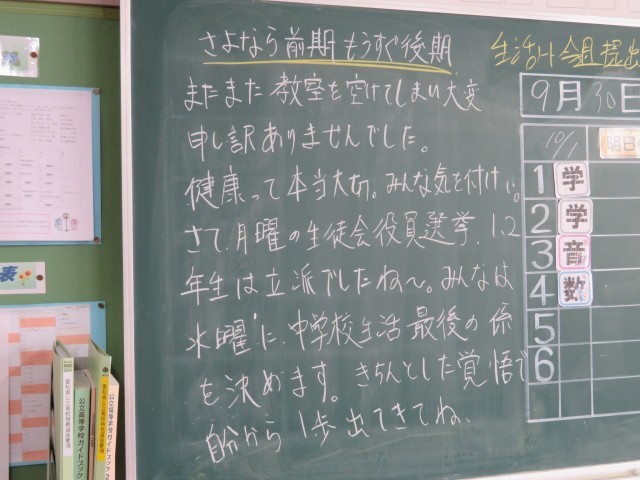 さよなら前期もうすぐ後期
またまた教室を空けてしまい大変
申し訳ありませんでした。
健康って本当大切。みんな気を付けに。
さて、月曜の生徒会役員選挙、1、2
年生は立派でしたね〜。みんなは
水曜に、中学校生活最後の係
を決めます。きちんとした覚悟で
自分から1歩出てきてね。
生活
提出
9月30日
10/1
明日
1 学
2 学
3 音
4 数
5
6
表
公立高等学校ガイドブック
公立高等学校ガイドブック2